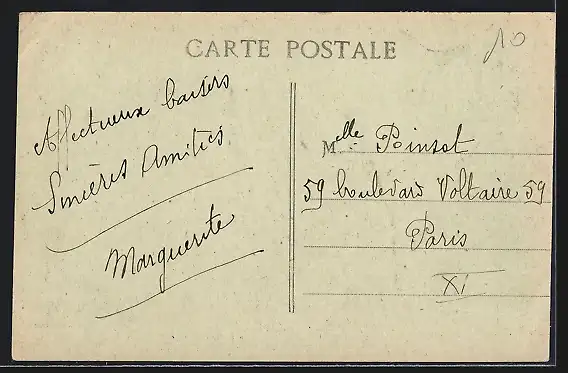 CARTE POSTALE
10
Affectueux baisers
Sincères Amitiés
Marguerite
Melle Poinsot
59 boulevard Voltaire 59
Paris
XI